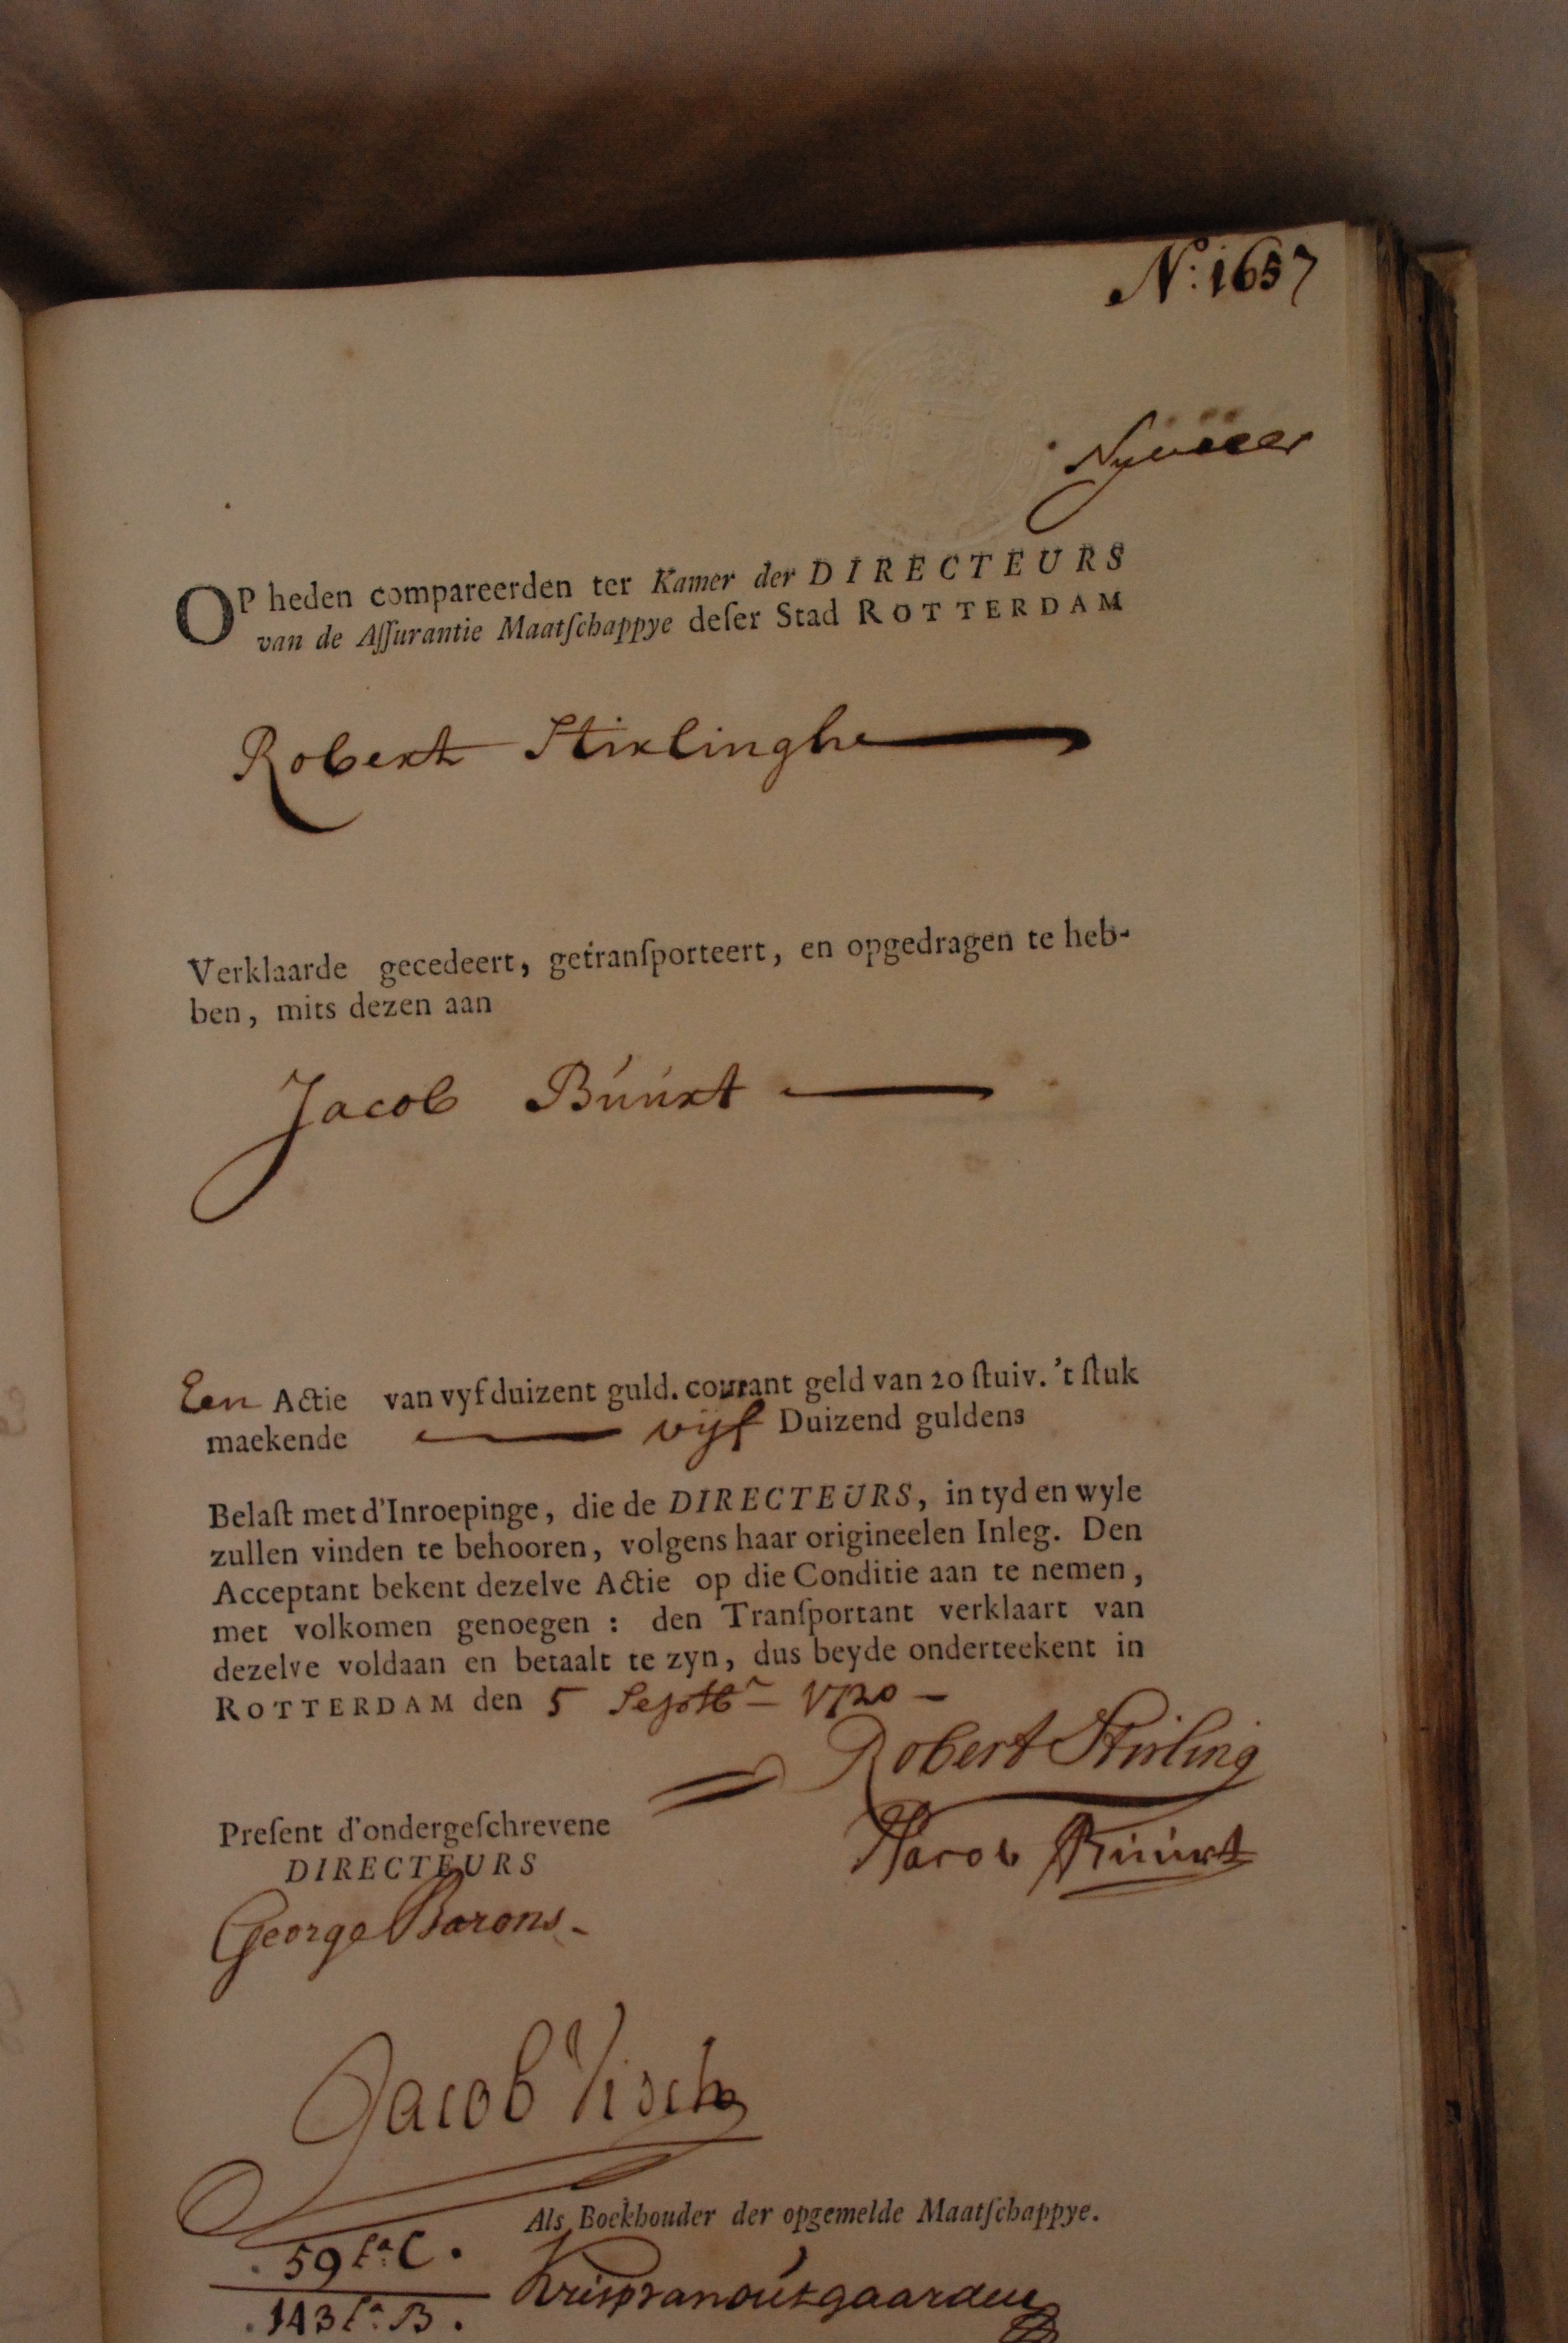 N:o 1657
OP heden compareerden ter Kamer der DIRECTEURS
van de Aſſurantie Maatſchappye deſer Stad ROTTERDAM
Robert Stirlinghe
Verklaarde gecedeert, getranſporteert, en opgedragen te heb-
ben, mits dezen aan
Jacob Búúrt
Een Actie van vyf duizent guld. courant geld van 20 ſtuiv. 't ſtuk
maekende vijf Duizend guldens
Belaſt met d'Inroepinge, die de DIRECTEURS, in tyd en wyle
zullen vinden te behooren, volgens haar origineelen Inleg. Den
Acceptant bekent dezelve Actie op die Conditie aan te nemen,
met volkomen genoegen : den Tranſportant verklaart van
dezelve voldaan en betaalt te zyn, dus beyde onderteekent in
ROTTERDAM den 5 Septbr 1720
Robert Stirling
Jacob Búúrt
Preſent d'ondergeſchrevene
DIRECTEURS
George Barons
Jacob Visch
Als Boekhouder der opgemelde Maatſchappye.
59 La: C.
143 La: B.